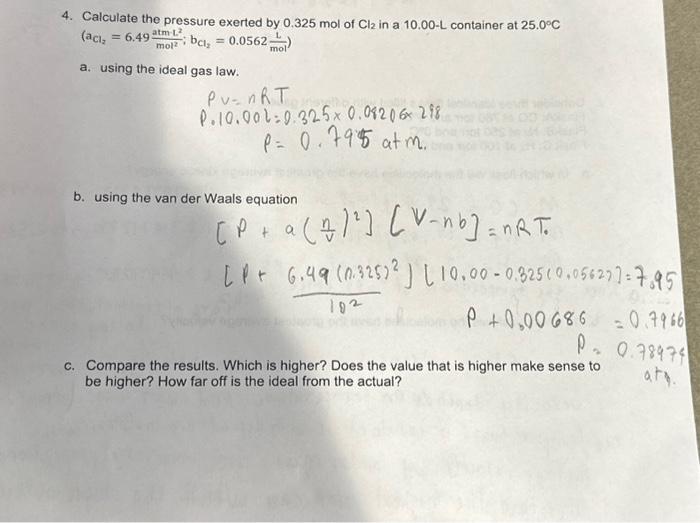 4. Calculate the pressure exerted by 0.325 mol of Cl₂ in a 10.00-L container at 25.0ºC
(a_Cl₂ = 6.49 atm·L²/mol²; b_Cl₂ = 0.0562 L/mol)
a. using the ideal gas law.
PV=nRT
P.10.00L=0.325×0.08206×298
P= 0.795 atm.
b. using the van der Waals equation
[P + a(n/V)²] [V-nb]=nRT.
[P+ 6.49(0.325)²/10²] [10.00-0.325(0.0562)]=7.95
P+0.00686 =0.7966
P= 0.78974
atm.
c. Compare the results. Which is higher? Does the value that is higher make sense to
be higher? How far off is the ideal from the actual?